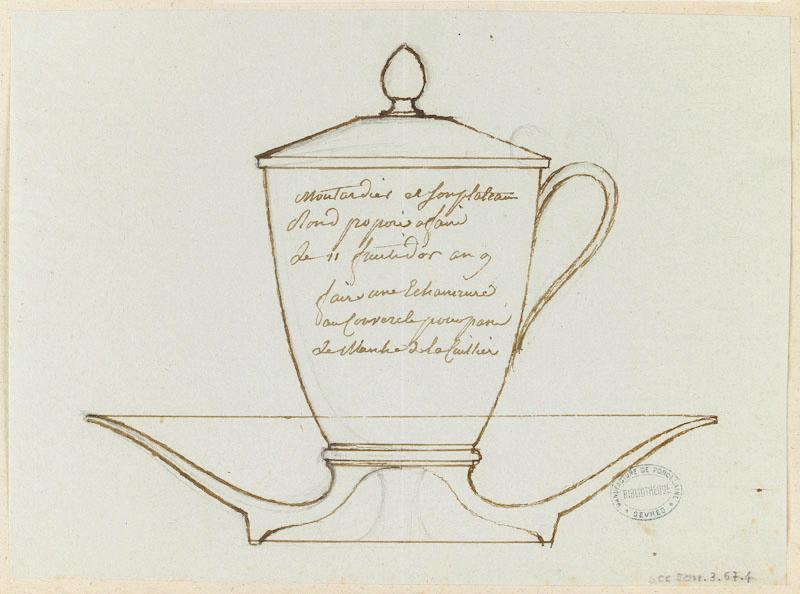 Moutardier et son plateau
Rond proposé a faire
le 11 fructidor an 9
faire une Echancrure
au Couvercle pour passer
le Manche de la Cuillier
MANUFACTURE DE PORCELAINE
BIBLIOTHEQUE
SEVRES
acc 2011.3.67.4